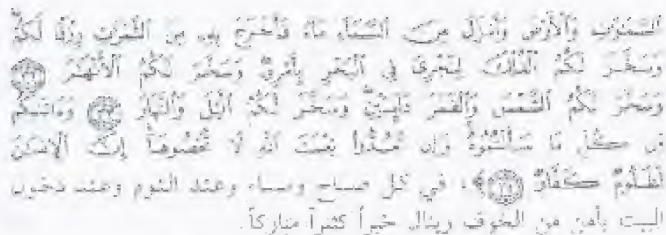 السَّمَٰوَٰتِ وَٱلْأَرْضَ وَأَنزَلَ مِنَ ٱلسَّمَآءِ مَآءً فَأَخْرَجَ بِهِۦ مِنَ ٱلثَّمَرَٰتِ رِزْقًا لَّكُمْ
وَسَخَّرَ لَكُمُ ٱلْفُلْكَ لِتَجْرِىَ فِى ٱلْبَحْرِ بِأَمْرِهِۦ وَسَخَّرَ لَكُمُ ٱلْأَنْهَٰرَ
وَسَخَّرَ لَكُمُ ٱلشَّمْسَ وَٱلْقَمَرَ دَآئِبَيْنِ وَسَخَّرَ لَكُمُ ٱلَّيْلَ وَٱلنَّهَارَ وَءَاتَىٰكُم
مِّن كُلِّ مَا سَأَلْتُمُوهُ وَإِن تَعُدُّوا۟ نِعْمَتَ ٱللَّهِ لَا تُحْصُوهَآ إِنَّ ٱلْإِنسَٰنَ
لَظَلُومٌ كَفَّارٌ ﴾، في كل صباح ومساء وعند النوم وعند دخول
البيت يأمن من الخوف وينال خيراً كثيراً مباركاً.